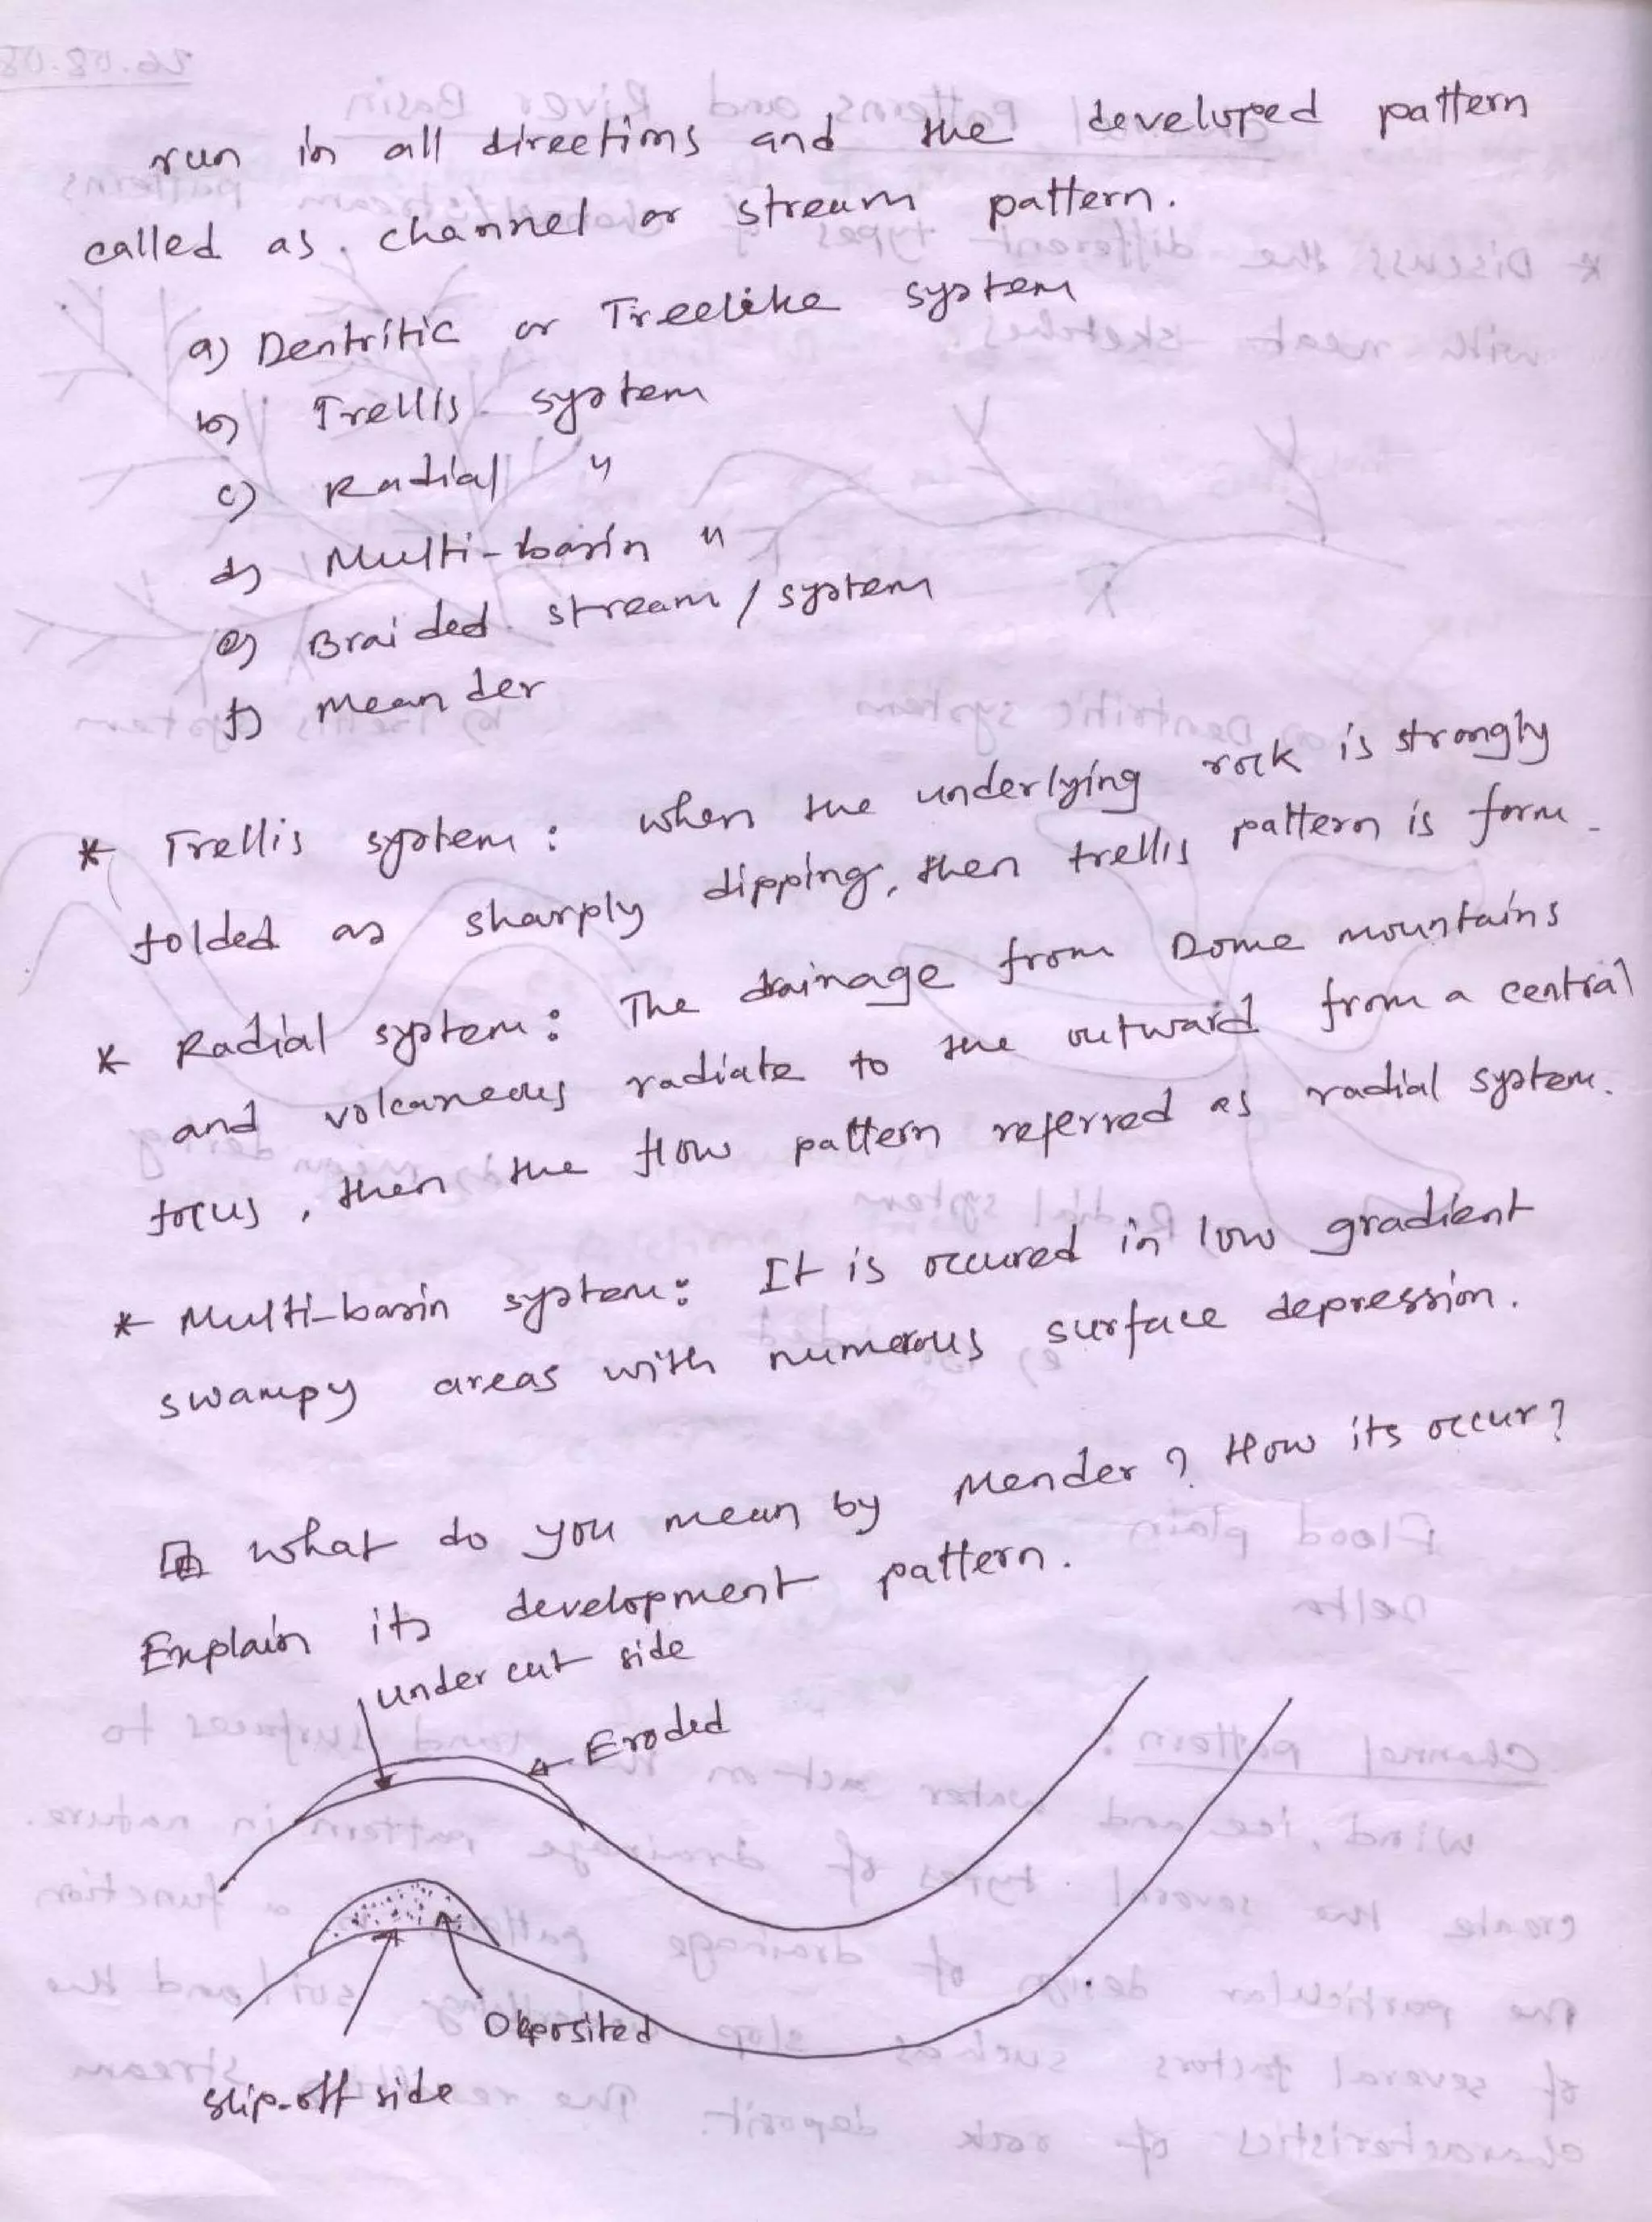 run in all directions and the developed pattern
called as channel or stream pattern.
a) Dentritic or Treelike system
b) Trellis system
c) Radial "
d) Multi-basin "
e) Braided stream / system
f) Meander
* Trellis system : when the underlying rock is strongly
folded as sharply dipping, then trellis pattern is form.
* Radial system : The drainage from Dome mountains
and volcaneous radiate to the outward from a central
focus, then the flow pattern referred as radial system.
* Multi-basin system : It is occured in low gradient
swampy areas with numerous surface depression.
What do you mean by Mender ? How its occur ?
Explain its development pattern.
under cut side
Eroded
Deposited
slip-off side